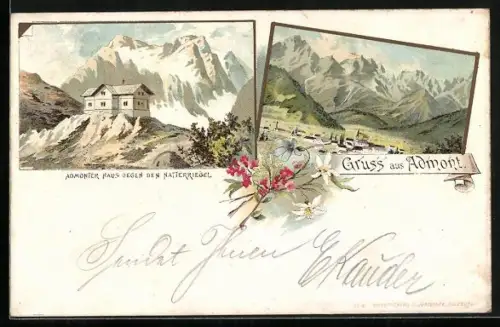 ADMONTER HAUS GEGEN DEN NATTERRIEGEL
Gruss aus Admont.
Sendet Ihnen EKauder